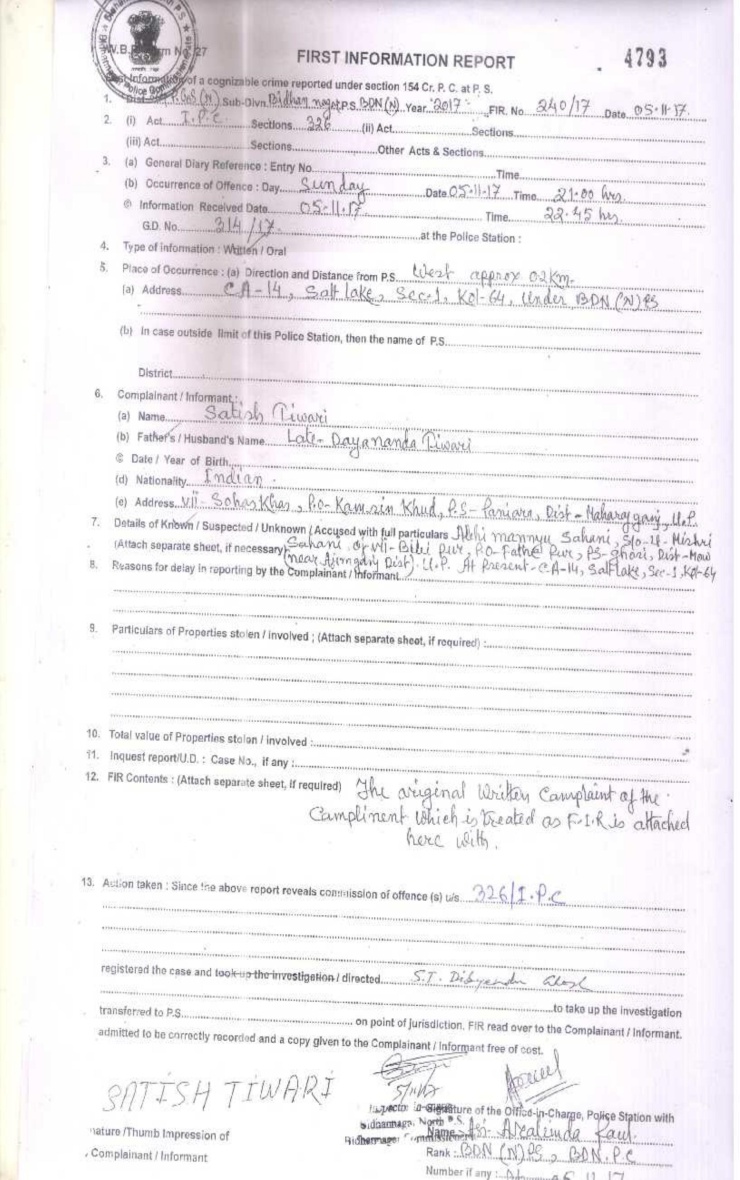 FIRST INFORMATION REPORT
4793
of a cognizable crime reported under section 154 Cr. P. C. at P. S.
1. Sub-Divn. Bidhan nagar P.S. BDN (N) Year 2017 FIR. No 240/17 Date 05.11.17.
2. (i) Act I.P.C. Sections 326 (ii) Act Sections
(iii) Act Sections Other Acts & Sections
3. (a) General Diary Reference : Entry No. Time
(b) Occurrence of Offence : Day Sunday Date 05.11.17 Time 21.00 hrs.
© Information Received Date 05.11.17. Time 22.45 hrs.
G.D. No. 314/17. at the Police Station :
4. Type of information : Written / Oral
5. Place of Occurrence : (a) Direction and Distance from P.S. West approx 02 Km.
(a) Address CA-14, Salt lake, Sec-1, Kol-64, Under BDN (N) PS
(b) In case outside limit of this Police Station, then the name of P.S.
District
6. Complainant / Informant :
(a) Name Satish Tiwari
(b) Father's / Husband's Name Late- Dayananda Tiwari
© Date / Year of Birth
(d) Nationality Indian.
(e) Address Vill- Sohas Khas, P.O- Kamsin Khud, P.S- Paniara, Dist - Maharajganj, U.P.
7. Details of Known / Suspected / Unknown / Accused with full particulars Abhi mannyu Sahani, S/o- Lt- Mishri
(Attach separate sheet, if necessary) Sahani of Vill- Bibi Pur, P.O- Fathe Pur, PS- ghosi, Dist- Mow
(near Dist). U.P. At Present- CA-14, Salt Lake, Sec-1, Kol-64
8. Reasons for delay in reporting by the Complainant / Informant
9. Particulars of Properties stolen / involved ; (Attach separate sheet, if required) :
10. Total value of Properties stolen / involved :
11. Inquest report/U.D. : Case No., if any :
12. FIR Contents : (Attach separate sheet, if required) The original Written Camplaint of the
Camplinent which is treated as F.I.R is attached
here with.
13. Action taken : Since the above report reveals commission of offence (s) u/s. 326/I.P.C
registered the case and took up the investigation / directed S.I. Dibyendu Ghosh
to take up the investigation
transferred to P.S. on point of jurisdiction. FIR read over to the Complainant / Informant.
admitted to be correctly recorded and a copy given to the Complainant / Informant free of cost.
SATISH TIWARI
5/11/17
Signature of the Office-in-Charge, Police Station with
nature /Thumb Impression of
Name
Complainant / Informant
Rank : BDN (N) PS, BDN. P.C
Number if any :